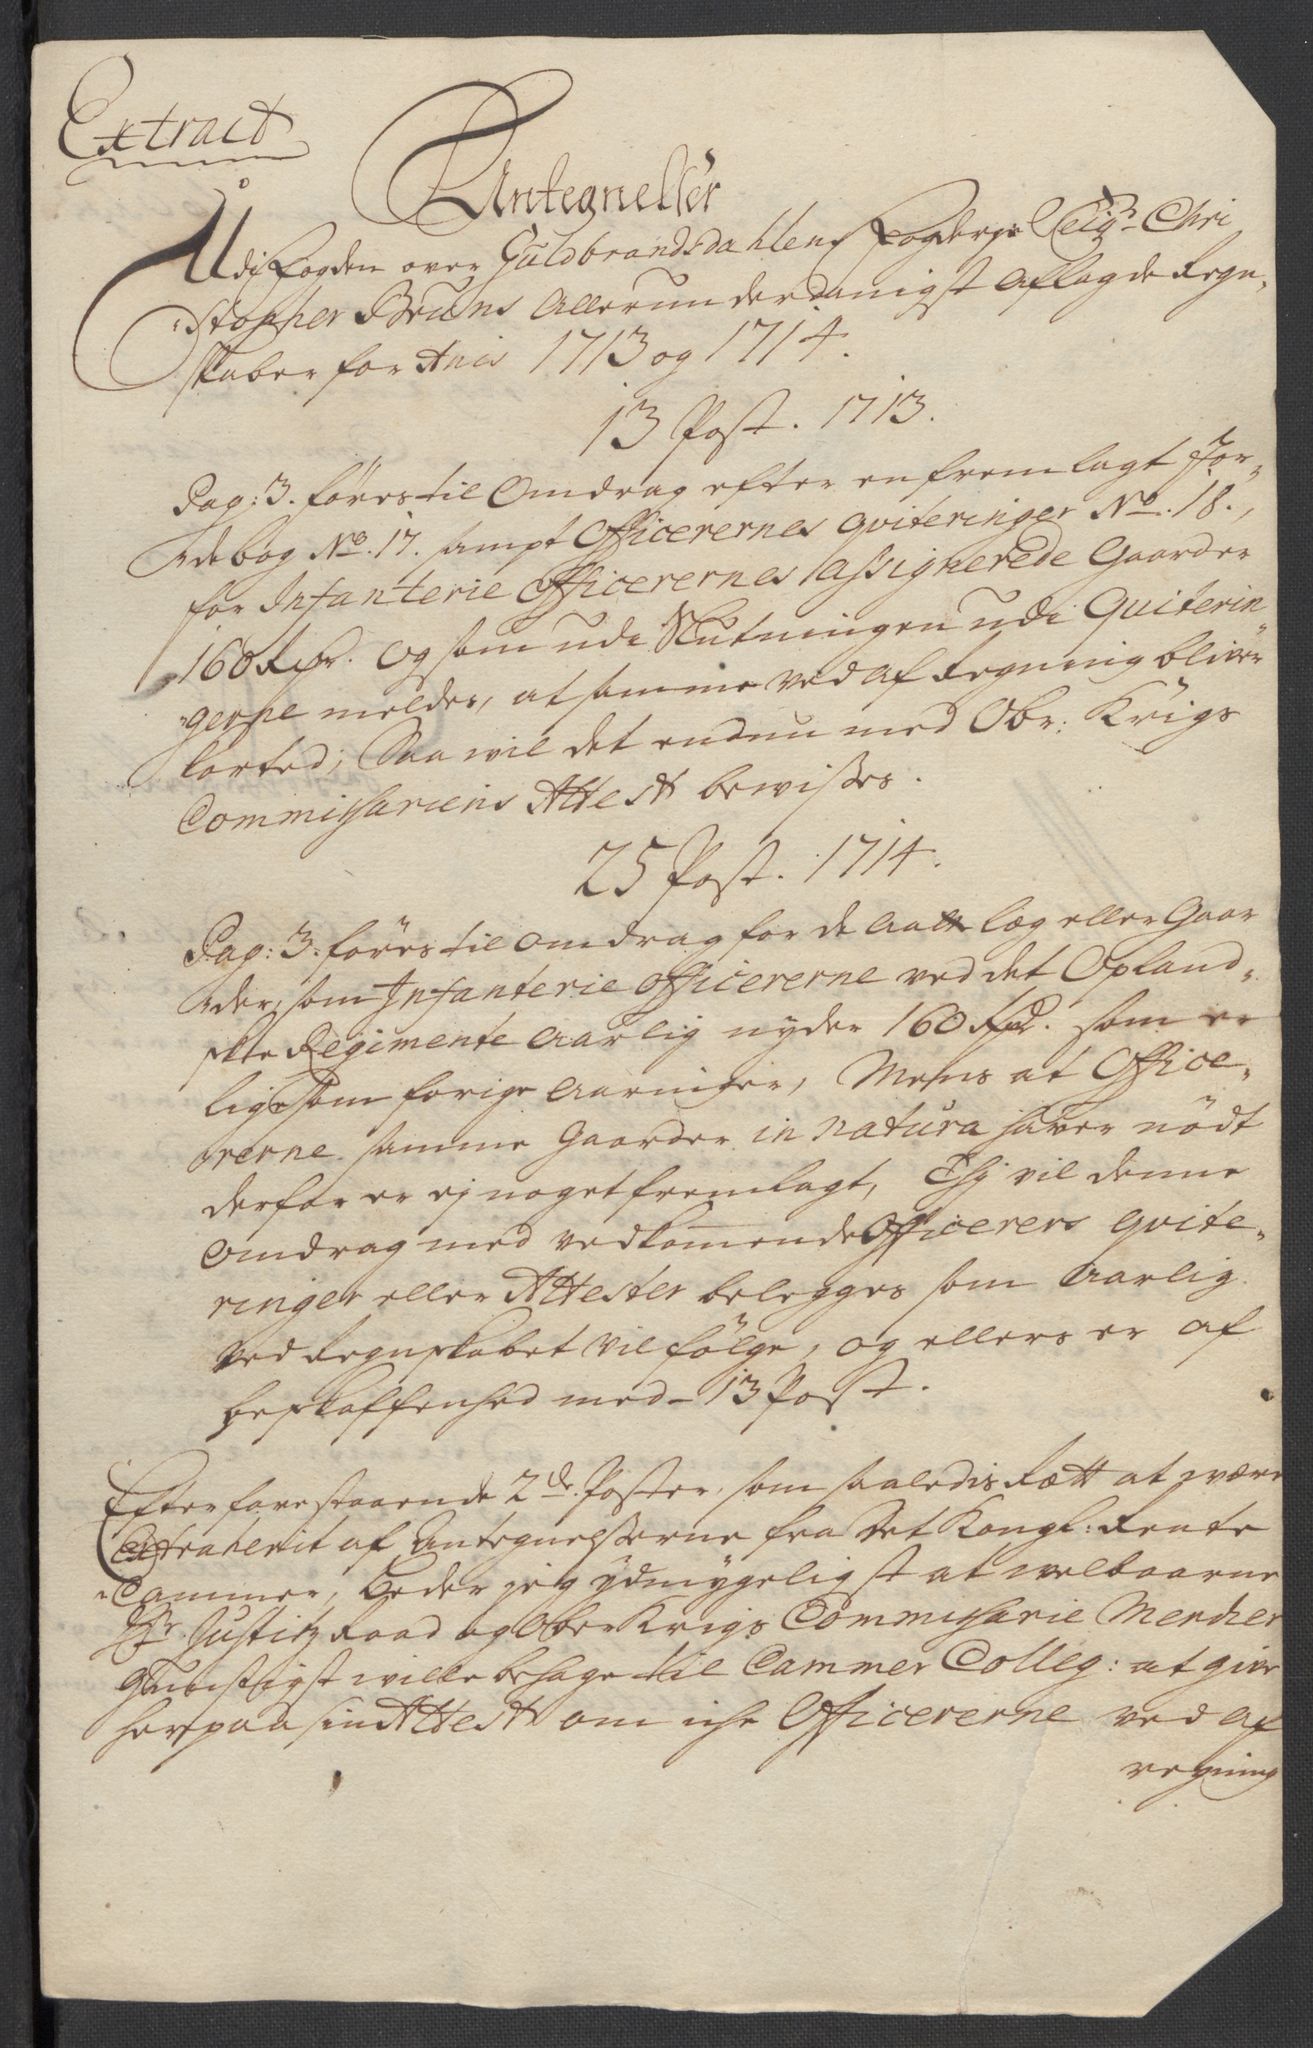 Extract
Antegnelser
Udi Fogden over Guldbrandsdahlens Fogderje Seig: Chri
stopher Bruns Allerunderdanigst Aflagde Regn-
skaber for Anis 1713 og 1714.
13 Post. 1713.
Pag: 3. føres til Omdrag efter en fremlagt Jor-
debog No. 17. sampt Officerernes qviteringer No. 18.,
for Infanterie Officerernes Assignerede Gaarder
160 Rdr. Og som udi Slutningen udi Quiterin
gerne meldes, at samme ved afregning bliver
korted; Saa wil det endnu med Obr: Krigs
Commissariens Attest bewisses.
25 Post. 1714.
Pag: 3. føres til Omdrag for de læg eller Gaar
der, som Infanterie Officererne ved det Opland-
ske Regimente Aarlig nyder 160 Rdr. som er
ligesom forige Aaringer, Mens at Office-
rerne samme Gaarder in natura haver nødt
derfor er ej noget fremlagt, Thj vil denne
Omdrag med vedkommende Officerers qvite-
ringer eller Attester belegges som Aarlig
ved Regnskabet vil følge, og ellers er af
beskaffenhed med 13 Post.
Efter forestaaende 2de. Poster, som saaledis Rætt at være
Extraherit af Antegnelsserne fra Det Kongl: Rente
Cammer, Beder jeg ydmygeligst at welbaarne
Hr. Justitz Raad og Ober Krigs Commissarie
Gunstigst wille behage til Cammer Colleg: at give
herpaa sin Attest om iche Officererne ved af
regning